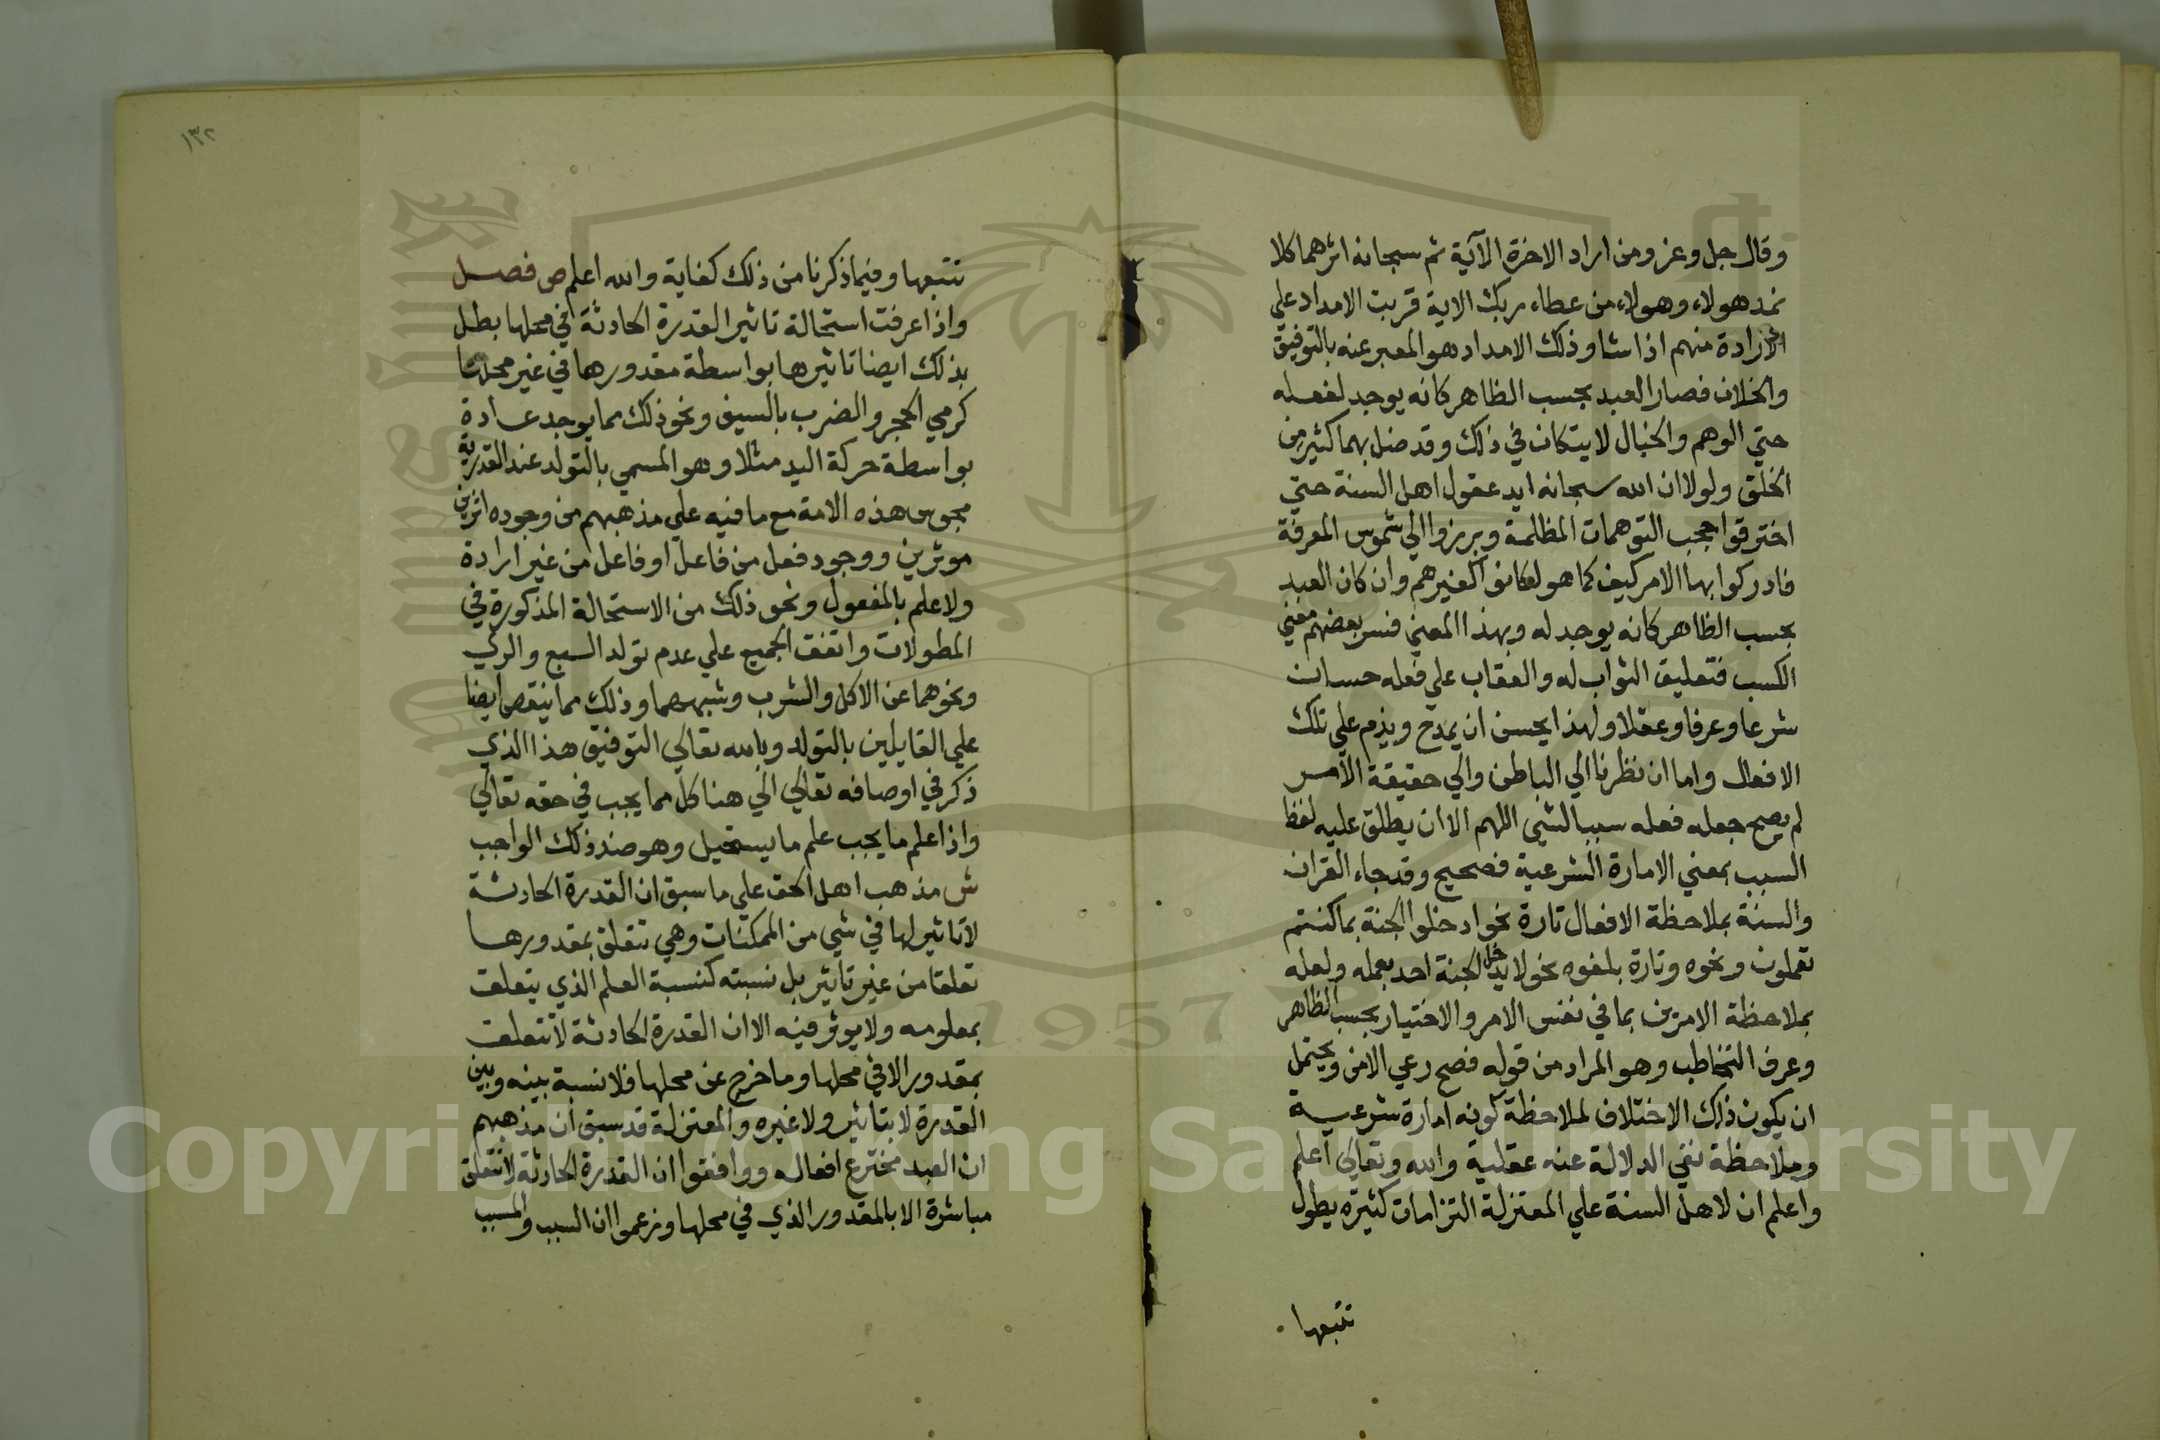 وقال جل وعز ومن اراد الاخرة الآية ثم سبحانه اثرهما كلا
نمد هولاء وهولاء من عطاء ربك الاية قربت الامداد علي
الارادة منهم اذا شا وذلك الامداد هو المعبر عنه بالتوفيق
والخذلان فصار العبد بحسب الظاهر كانه يوجد لفعله
حتي الوهم والخيال لا يشكان في ذلك وقد ضل بهما كثير من
الخلق ولولا ان الله سبحانه ايد عقول اهل السنة حتي
اخترقوا حجب التوهمات المظلمة وبرزوا الي شموس المعرفة
فادركوا بها الامر كيف كما هو لكانوا كغيرهم وان كان العبد
بحسب الظاهر كانه يوجد له وبهذا المعني فسر بعضهم معني
الكسب فتعليق الثواب له والعقاب علي فعله حسان
شرعا وعرفا وعقلا ولهذا يحسن ان يمدح ويذم علي تلك
الافعال واما ان نظرنا الي الباطن والي حقيقة الامر
لم يصح جعله فعله سببا لشي اللهم الا ان يطلق عليه لفظ
السبب بمعني الامارة الشرعية فصحيح وقد جاء القران
والسنة بملاحظة الافعال تارة نحو ادخلوا الجنة بما كنتم
تعملون ونحوه وتارة بلغوه نحو لا يدخل الجنة احد بعمله ولعله
بملاحظة الامرين بما في نفس الامر والاختيار بحسب الظاهر
وعرف التخاطب وهو المراد من قوله فصح رعي الامرين ويحتمل
ان يكون ذلك الاختلاف لملاحظة كونه امارة شرعية
وملاحظة نفي الدلالة عنه عقلية والله وتعالي اعلم
واعلم ان لاهل السنة علي المعتزلة التزامات كثيره يطول
تتبعها
١٣٢
تتبعها وفيما ذكرنا من ذلك كفاية والله اعلم ص فصل
واذا عرفت استحالة تاثير القدرة الحادثة في محلها بطل
بذلك ايضا تاثيرها بواسطة مقدورها في غير محلها
كرمي الحجر والضرب بالسيف ونحو ذلك مما يوجد عادة
بواسطة حركة اليد مثلا وهو المسمي بالتولد عند القدرية
مجوس هذه الامة مع ما فيه علي مذهبهم من وجوده اثر بين
موثرين ووجود فعل من فاعل او فاعل من غير ارادة
ولا علم بالمفعول ونحو ذلك من الاستحالة المذكورة في
المطولات واتفق الجميع علي عدم تولد الشبع والري
ونحوهما عن الاكل والشرب وشبههما وذلك مما ينقض ايضا
علي القايلين بالتولد وبالله تعالي التوفيق هذا الذي
ذكر في اوصافه تعالي الي هنا كل مما يجب في حقه تعالي
واذا علم ما يجب علم ما يستحيل وهو ضد ذلك الواجب
ش مذهب اهل الحق علي ما سبق ان القدرة الحادثة
لا تاثير لها في شي من الممكنات وهي تتعلق بمقدورها
تعلقا من غير تاثير بل نسبته كنسبة العلم الذي يتعلق
بمعلومه ولا يوثر فيه الا ان القدرة الحادثة لا تتعلق
بمقدور الا في محلها وما خرج عن محلها فلا نسبة بينه وبين
القدرة لا بتاثير ولا غيره والمعتزلة قد سبق ان مذهبهم
ان العبد مخترع افعاله ووافقوا ان القدرة الحادثة لا تتعلق
مباشرة الا بالمقدور الذي في محلها وزعموا ان السبب والمسبب
1957
Copyright © King Saud University